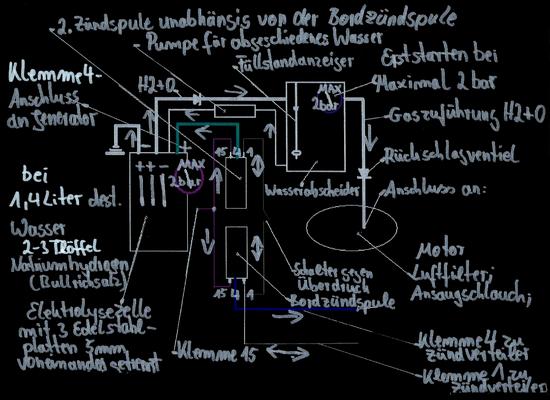 2. Zündspule unabhängig von der Bordzündspule
Pumpe für abgeschiedenes Wasser
Füllstandanzeiger
Erststarten bei
Maximal 2 bar
Klemme 4-
Anschluss
an Generator
H2+O
MAX
2bar
Gaszuführung H2+O
Rückschlagventiel
Anschluss an:
- +
++-
MAX
2bar
15 4 1
Wasserabscheider
bei
1,4 Liter dest.
Wasser
2-3 Tlöffel
Natriumhydrogen
(Bullrichsalz)
Motor
Luftfilter;
Ansaugschlauch;
Schalter gegen
Überdruck
Bordzündspule
15 4 1
Elektrolysezelle
mit 3 Edelstahl-
platten 5mm
voneinander getrennt
Klemme 15
Klemme 4 zu
Zündverteiler
Klemme 1 zu
Zündverteiler